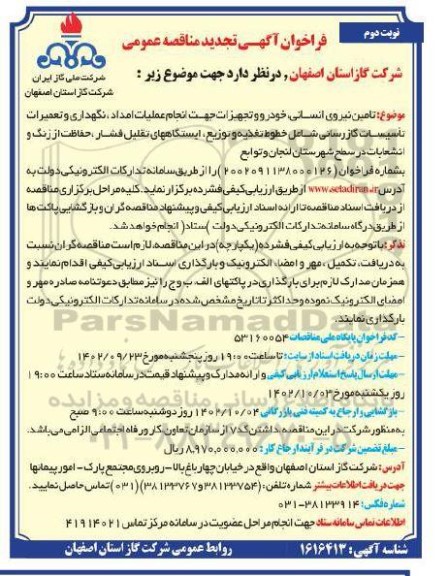 نوبت دوم
فراخوان آگهی تجدید مناقصه عمومی
شرکت ملی گاز ایران
شرکت گاز استان اصفهان
شرکت گاز استان اصفهان , در نظر دارد جهت موضوع زیر :
موضوع: تامین نیروی انسانی، خودرو و تجهیزات جهت انجام عملیات امداد ، نگهداری و تعمیرات
تأسیسات گازرسانی شامل خطوط تغذیه و توزیع ، ایستگاههای تقلیل فشار ، حفاظت از زنگ و
انشعابات در سطح شهرستان لنجان و توابع
بشماره فراخوان (۲۰۰۲۰۹۱۱۳۸۰۰۰۱۲۶) را از طریق سامانه تدارکات الکترونیکی دولت به
آدرس www.setadiran.ir از طریق ارزیابی کیفی فشرده برگزار نماید. کلیه مراحل برگزاری مناقصه
از دریافت اسناد مناقصه تا ارائه اسناد ارزیابی کیفی و پیشنهاد مناقصه گران و بازگشایی پاکت ها
از طریق درگاه سامانه تدارکات الکترونیکی دولت (ستاد) انجام خواهد شد.
تذکر: با توجه به ارزیابی کیفی فشرده (یکپارچه) در این مناقصه، لازم است مناقصه گران نسبت
به دریافت، تکمیل ، مهر و امضاء الکترونیک و بارگذاری اسناد ارزیابی کیفی اقدام نمایند و
همزمان مدارک لازم برای بارگذاری در پاکتهای الف، ب و ج را نیز مطابق دعوتنامه صادره مهر و
امضای الکترونیک نموده و حداکثر تا تاریخ مشخص شده در سامانه تدارکات الکترونیکی دولت
بارگذاری نمایند.
ParsNamadData
- کد فراخوان پایگاه ملی مناقصات ۵۳۱۶۰۰۵۴
- مهلت زمان دریافت اسناد از سایت: تا ساعت ۱۹:۰۰ روز پنجشنبه مورخ ۱۴۰۲/۰۹/۲۳
- مهلت ارسال پاسخ استعلام ارزیابی کیفی و ارائه مدارک و پیشنهاد قیمت در سامانه ستاد ساعت ۱۹:۰۰
روز یکشنبه مورخ ۱۴۰۲/۱۰/۰۳
- بازگشایی و ارجاع به کمیته فنی بازرگانی ۱۴۰۲/۱۰/۰۴ روز دوشنبه ساعت ۹:۰۰ صبح
به منظور شرکت در این مناقصه داشتن کد ۷ از سازمان تعاون، کار و رفاه اجتماعی الزامی می باشد.
- مبلغ تضمین شرکت در فرآیند ارجاع کار: ۸,۹۷۰,۰۰۰,۰۰۰ ریال
آدرس : شرکت گاز استان اصفهان واقع در خیابان چهارباغ بالا - روبروی مجتمع پارک - امور پیمانها
جهت دریافت اطلاعات بیشتر شماره تلفن: (۳۸۱۳۳۷۵۴ و ۳۸۱۳۳۷۶۷) (۰۳۱) تماس حاصل نمایید.
شماره فکس: ۳۸۱۳۳۹۱۴-۰۳۱
اطلاعات تماس سامانه ستاد جهت انجام مراحل عضویت در سامانه مرکز تماس ۰۲۱-۴۱۹۱۴
شناسه آگهی : ۱۶۱۶۴۱۳
روابط عمومی شرکت گاز استان اصفهان